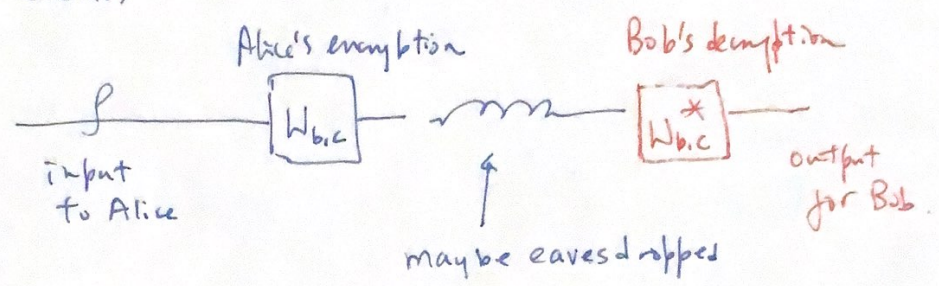 Alice's encryption
Bob's decryption
ρ
W_{b,c}
W^*_{b,c}
input
to Alice
output
for Bob.
maybe eavesdropped